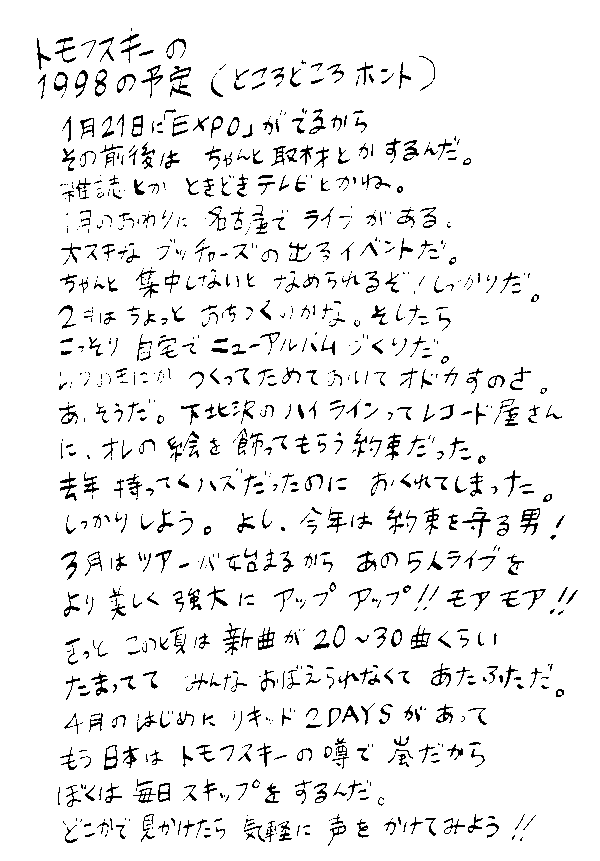 トモフスキーの
1998の予定(ところどころ ホント)
1月21日に「EXPO」がでるから
その前後は ちゃんと取材とかするんだ。
雑誌とか ときどきテレビとかね。
1月のおわりに 名古屋で ライブがある。
大スキな ブッチャーズの出るイベントだ。
ちゃんと 集中しないと なめられるぞ!しっかりだ。
2月はちょっと おちつくのかな。そしたら
こっそり 自宅で ニューアルバムづくりだ。
いつのまにか つくってためておいて オドカすのさ。
あ、そうだ。下北沢のハイラインってレコード屋さん
に、オレの絵を飾ってもらう約束だった。
去年 持ってくハズだったのに おくれてしまった。
しっかりしよう。よし、今年は 約束を守る男!
3月はツアーが始まるから あの5人ライブを
より美しく 強大に アップ アップ!!モア モア!!
きっと この頃は 新曲が 20~30曲くらい
たまってて みんな おぼえられなくて あたふただ。
4月のはじめに リキッド 2DAYSがあって
もう日本は トモフスキーの噂で 嵐だから
ぼくは 毎日 スキップをするんだ。
どこかで 見かけたら 気軽に 声を かけてみよう!!